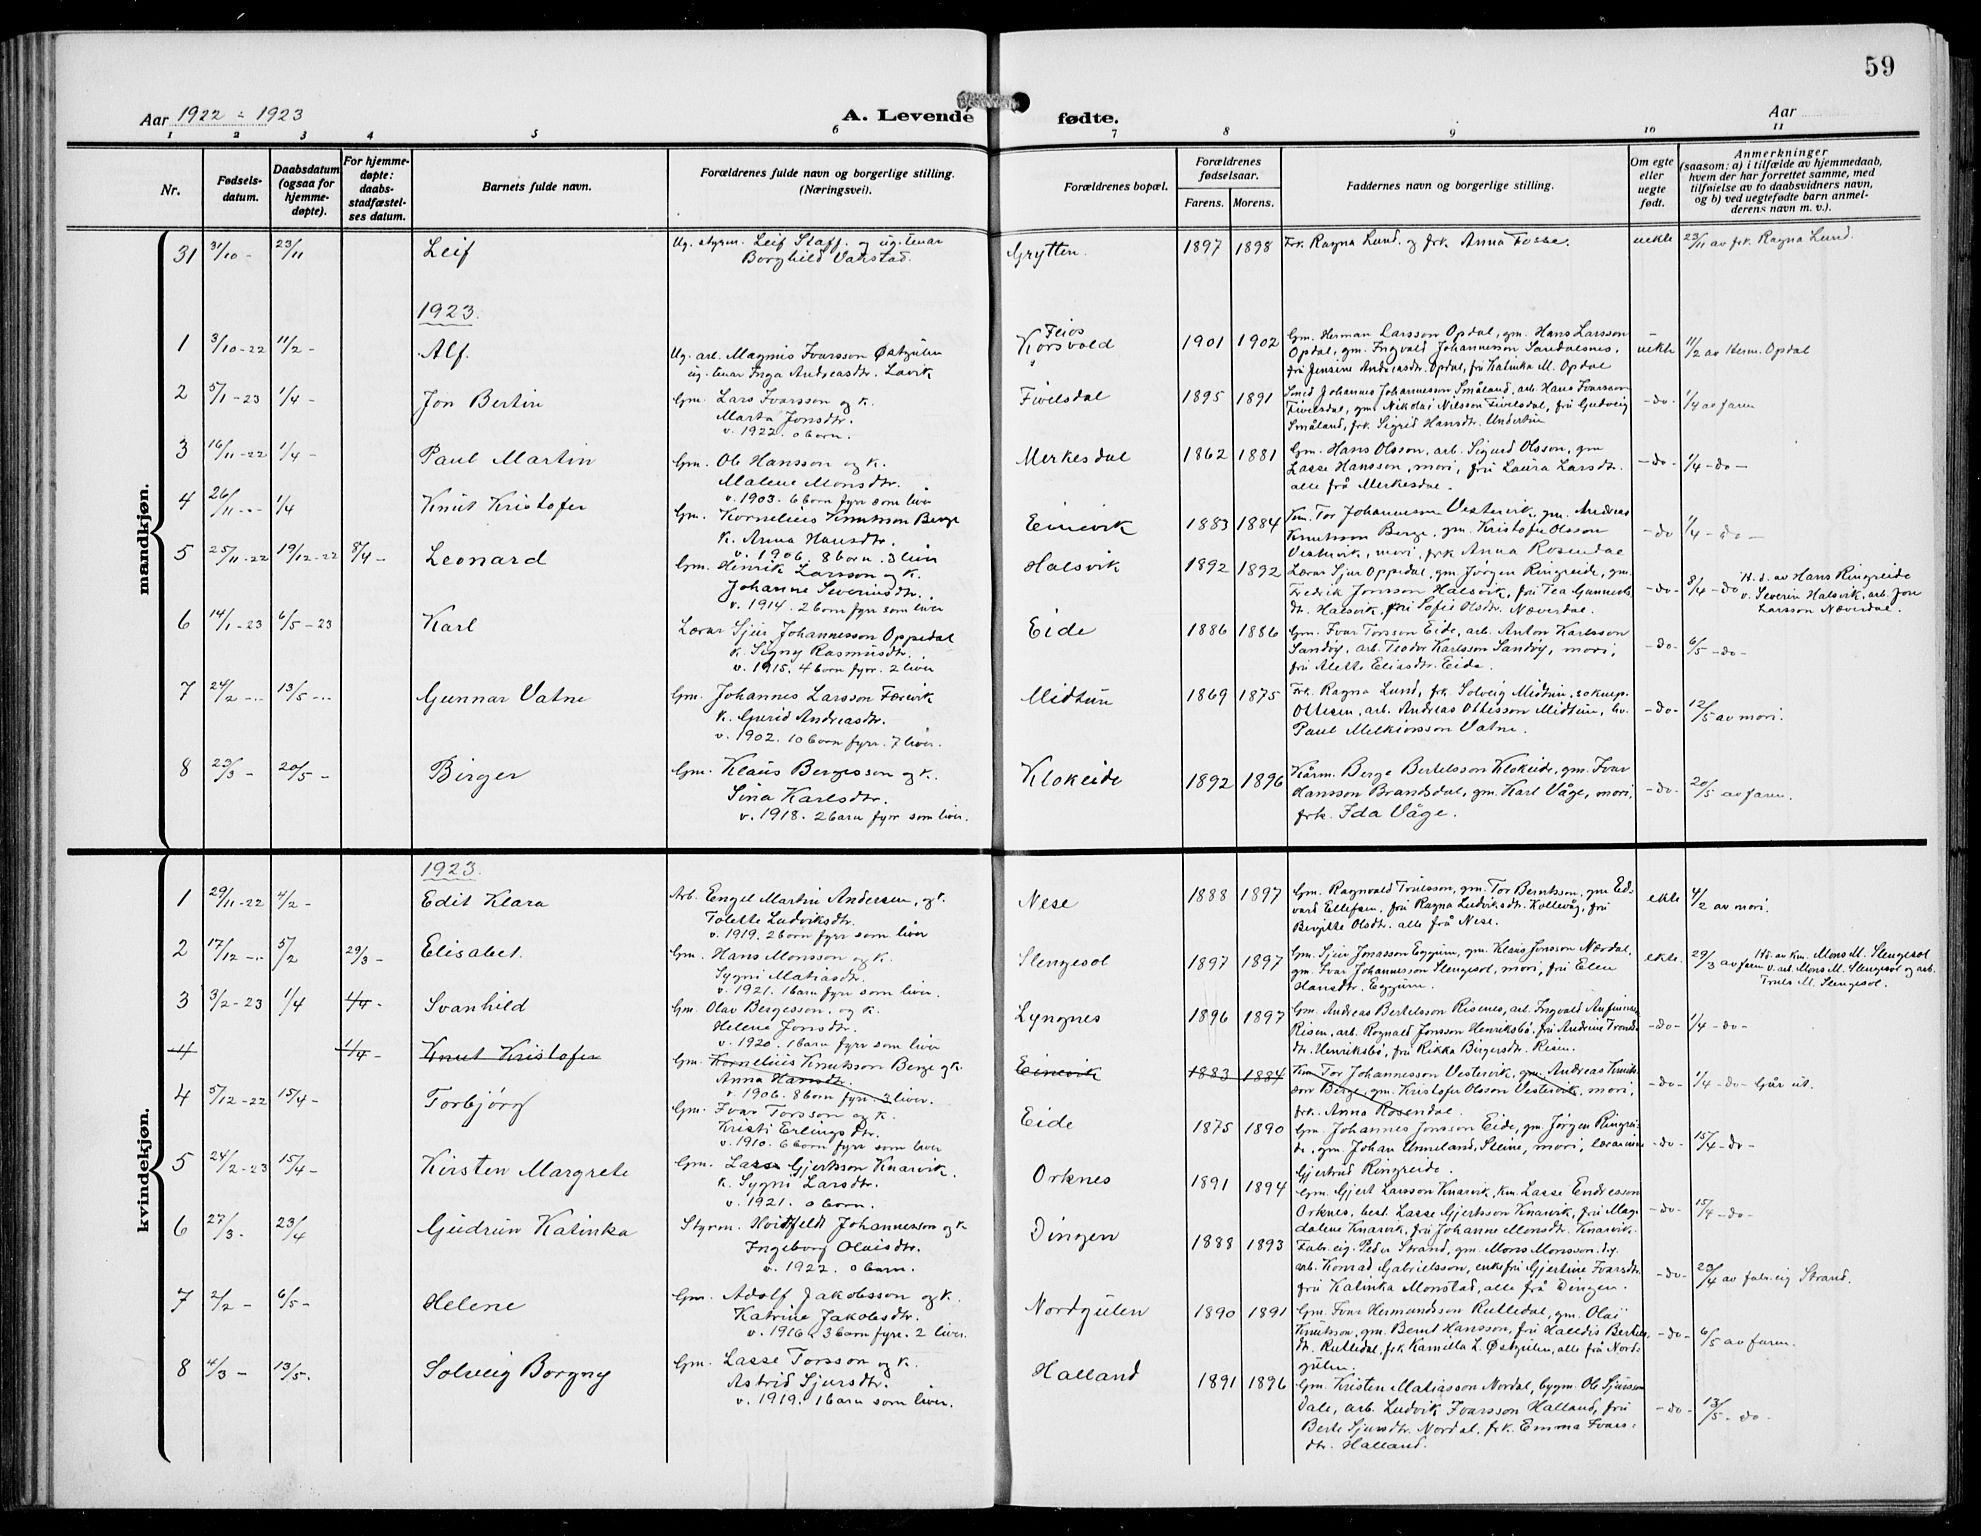 59
Aar 1922 - 1923
A. Levende fødte.
Aar
1 2 3 4 5 6 7 8 9 10 11
Nr.
Fødsels-
datum.
Daabsdatum
(ogsaa for
hjemme-
døpte).
For hjemme-
døpte:
daabs-
stadfæstel-
ses datum.
Barnets fulde navn.
Forældrenes fulde navn og borgerlige stilling.
(Næringsvei).
Forældrenes bopæl.
Forældrenes
fødselsaar.
Farens. Morens.
Faddernes navn og borgerlige stilling.
Om egte
eller
uegte
født.
Anmerkninger
(saasom: a) i tilfælde av hjemmedaab,
hvem der har forrettet samme, med
tilføielse av to daabsvidners navn,
og b) ved uegtefødte barn anmel-
derens navn m. v.).
mandkjøn.
31 31/10 - 23/11 Leif
Ug. styrm. Leif Staff. og ug. tenar
Borghild Varstad.
Grytten. 1897 1898
Frk. Ragna Lund og frk. Anna Fosse.
uekte 23/11 av frk. Ragna Lund.
1923.
1 3/10-22 11/2 - Alf.
Ug. arb. Magnus Ivarsson Østgulen
ug. tenar Inga Andreasdtr. Lavik
Feios
Korsvold 1901 1902
Gm. Herman Larsson Opdal, gm. Hans Larsson
Opdal, gm. Ingvald Johannesson Sandalsnes,
fru Jensine Andreasdtr. Opdal, fru Katinka M. Opdal
uekte 11/2 av Herm. Opdal
2 5/1-23 1/4 - Jon Bertin
Gm. Lars Ivarsson og k.
Marta Jonsdtr.
v. 1922. 0 born.
Fivelsdal 1895 1891
Smed Johannes Johannesson Småland, arb. Hans Ivarsson
Fivelsdal, gm. Nikolai Nilsson Fivelsdal, fru Gudveig
Småland, frk. Sigrid Hansdtr. Undertun
-do- 1/4 av faren
3 16/11-22 1/4 - Paul Martin
Gm. Ole Hansson og k.
Malene Monsdtr.
v. 1903. 6 born fyrr som liver
Merkesdal 1862 1881
Gm. Hans Olsson, arb. Sigurd Olsson, gm
Lasse Hansson, mori, fru Laura Larsdtr.
alle frå Merkesdal.
-do- 1/4 -do-
4 26/11 -.- 1/4 Knut Kristofer
Gm. Kornelius Knutsson Berge
k. Anna Hansdtr.
v. 1906. 8 born. 3 liver
Einevik 1883 1884
Km. Tor Johannesson Vestervik, gm. Andreas
Knutsson Berge, gm. Kristofer Olsson
Vestervik, mori, frk. Anna Rosendal
-do 1/4 - do -
5 25/11-22 19/12-22 8/4 - Leonard
Gm. Henrik Larsson og k.
Johanne Severinsdtr.
v. 1914. 2 born fyrr som liver
Halsvik 1892 1892
Lærar Sjur Oppedal, gm Jørgen Ringreide, gm.
Fredrik Jonsson Halsvik, fru Tea Gunnerls
dt. Halsvik, fru Sofie Olsdtr. Næverdal.
-do- 8/4 -do
H. d. av Hans Ringreide
v. Severin Halsvik, arb. Jon
Larsson Næverdal.
6 14/1-23 6/5-23 Karl
Lærar Sjur Johannesson Oppedal
k. Signy Rasmusdtr.
v. 1915. 4 born fyrr. 2 liver
Eide 1886 1886
Gm. Ivar Torsson Eide, arb. Anton Karlsson
Sandøy, arb. Teodor Karlsson Sandøy, mori,
fru Alette Eliasdtr. Eide.
-do- 6/5 -do-
7 24/2 -.. 13/5 -.. Gunnar Vatne
Gm. Johannes Larsson Færevik
k. Gurid Andreasdtr.
v. 1902. 10 born fyrr. 7 liver.
Midtun 1869 1875
Frk. Ragna Lund, frk. Solveig Midtun,
Ottesen, arb. Andreas Ottesson Midtun,
Paul Melkiorsson Vatne.
-do- 12/5 av mori.
8 23/3 - 20/5 - Birger
Gm. Klaus Bergesson og k.
Sina Karlsdtr.
v. 1918. 2 barn fyrr som liver.
Klokeide 1892 1896
Kårm. Berge Bertelsson Klokeide, gm. Ivar
Hansson Brandsdal, gm. Karl Våge, mori,
frk. Ida Våge.
-do- 20/5 av faren.
kvindekjøn.
1923.
1 29/11-22 4/2 - Edit Klara
Arb. Engel Martin Andersen, og k.
Tolette Ludviksdtr.
v. 1919. 2 born fyrr som liver
Nese 1888 1897
Gm. Ragnvald Trulsson, gm. Tor Berntsson, gm Ed-
vard Ellefsen, fru Ragna Ludviksdtr. Kollevåg, fru
Birgitte Olsdtr. alle frå Nese.
ekte 4/2 av mori.
2 17/12 -.. 5/2 29/3 - Elisabet.
Gm. Hans Monsson og k.
Sygni Matiasdtr.
v. 1921. 1 barn fyrr som liver.
Slengesol 1897 1897
Gm. Sjur Jonasson Eggum, gm. Klaus Jonsson Nærdal,
gm. Ivar Johannesson Slengesol, mori, fru Elen
Hansdtr. Eggum.
ekte. 29/3 av faren
H.d. av km. Mons M. Slengesol
v. arb. Mons M. Slengesol og arb.
Truls M. Slengesol.
3 3/2-23 1/4 1/4 Svanhild
Gm. Olav Bergesson. og k.
Helene Jonsdtr.
v. 1920. 1 barn fyrr som liver
Lyngnes 1896 1897
Gm. Andreas Bertelsson Risenes, arb. Ingvald Anfinnss
Risen, arb. Rognald Jonsson Henriksbø, fru Andrine Tronds
dt. Henriksbø, fru Rikka Birgersdtr. Risen.
-do- 1/4 -do-
4 1/4 Knut Kristofer
Gm. Kornelius Knutsson Berge og k.
Anna Hansdtr.
v. 1906. 8 born fyrr 3 liver.
Einevik 1883 1884
Km. Tor Johannesson Vestervik, gm. Andreas Knuts-
son Berge, gm. Kristofer Olsson Vestervik, mori,
frk. Anna Rosendal.
-do- 1/4 -do- Går ut.
4 5/12-22 15/4 - Torbjørg
Gm. Ivar Torsson og k.
Kristi Erlingsdtr.
v. 1910. 6 born fyrr som liver
Eide 1875 1890
Gm. Johannes Jonsson Eide, gm. Jørgen Ringrei-
de, gm. Johan Anneland, Steine, mori, lærarinne
Gjertrud Ringreide.
-do- 15/4 -do-
5 24/2-23 15/4 - Kirsten Margrete
Gm. Lasse Gjertsson Knarvik.
k. Sygni Larsdtr.
v. 1921. 0 born.
Orknes 1891 1894
Gm. Gjert Larsson Knarvik, km. Lasse Endresson
Orknes, best. Lasse Gjertsson Knarvik, fru Mag-
dalene Knarvik, fru Johanne Monsdtr. Knarvik.
-do- 15/4 -do-
6 27/3 - 23/4 Gudrun Katinka
Styrm. Hvitfeldt Johannesson og k
Ingeborg Olaisdtr.
v. 1922. 0 barn.
Dingen 1888 1893
Fabr. eig. Peder Strand, gm. Mons Monsson.
arb. Konrad Gabrielsson, enkefru Gjertine Ivarsdtr.
fru Katinka Monstad, alle frå Dingen.
-do- 23/4 av fabr. eig Strand.
7 2/2 - 6/5 - Helene
Gm. Adolf Jakobsson og k.
Katrine Jakobsdtr.
v. 1916. 3 born fyrr. 2 liver.
Nordgulen 1890 1891
Gm. Ivar Hermundsson Rutledal, gm. Olai
Knutsson, gm. Bernt Hansson, fru Halldis Bertels
dt. Rutledal, frk Kamilla L. Østgulen, alle frå Nord-
gulen.
-do- 6/5 av faren.
8 4/3 - 13/5. Solveig Borgny
Gm. Lasse Torsson og k.
Astrid Sjursdtr.
v. 1919. 1 barn som liver.
Halland 1891 1896
Gm. Kristen Matiasson Nordal, bygm. Ole Sjursson
Dale, arb. Ludvik Ivarsson Halland, fru
Berte Sjursdtr. Nordal, frk. Emma Ivars-
dtr. Halland.
-do- 13/5 -do-